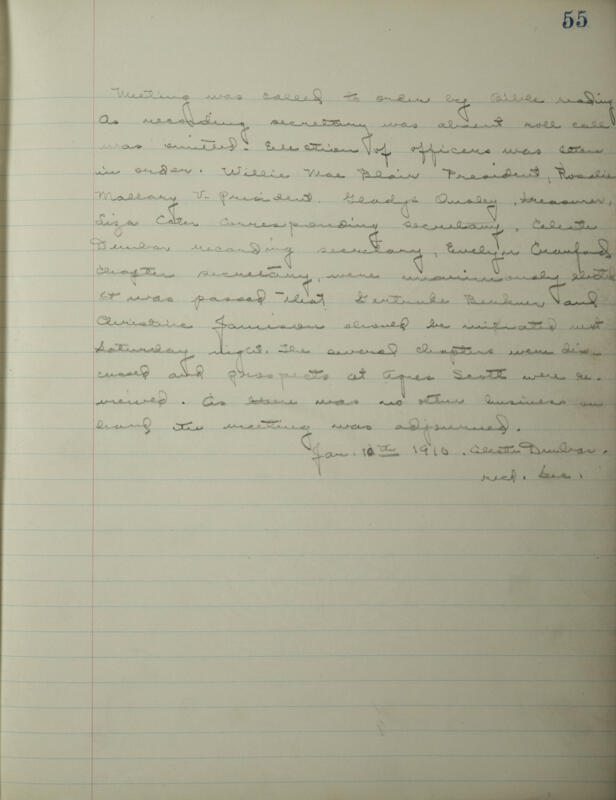 55
Meeting was called to order by Bible reading
As recording secretary was absent roll call
was omitted. Election of officers was then
in order. Willie Mae Blair President, Rosalie
Mallary V-President. Gladys Ousley, treasurer,
Liza Cater Corresponding secretary, Celeste
Dunbar recording secretary, Evelyn Crawford,
Chapter secretary, were unanimously elected
It was passed that Gertrude and
Christine Jamison should be initiated next
Saturday night. The several chapters were dis-
cussed and prospects at Agnes Scott were re-
viewed. As there was no other business on
hand the meeting was adjourned.
Jan. 10th 1910. Celeste Dunbar.
recd. Sec.